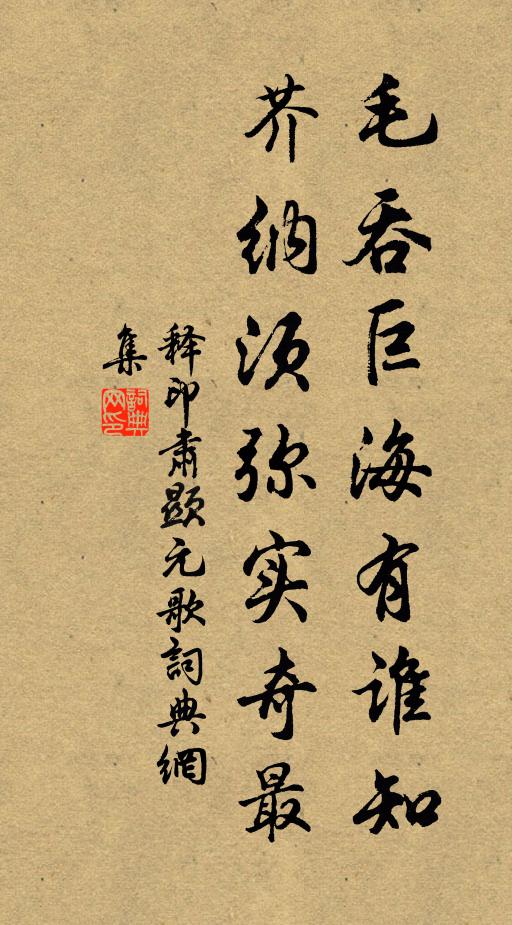 毛吞巨海有谁知
芥纳须弥实奇最
释印肃显元歌詞典網
集
詞典
网印